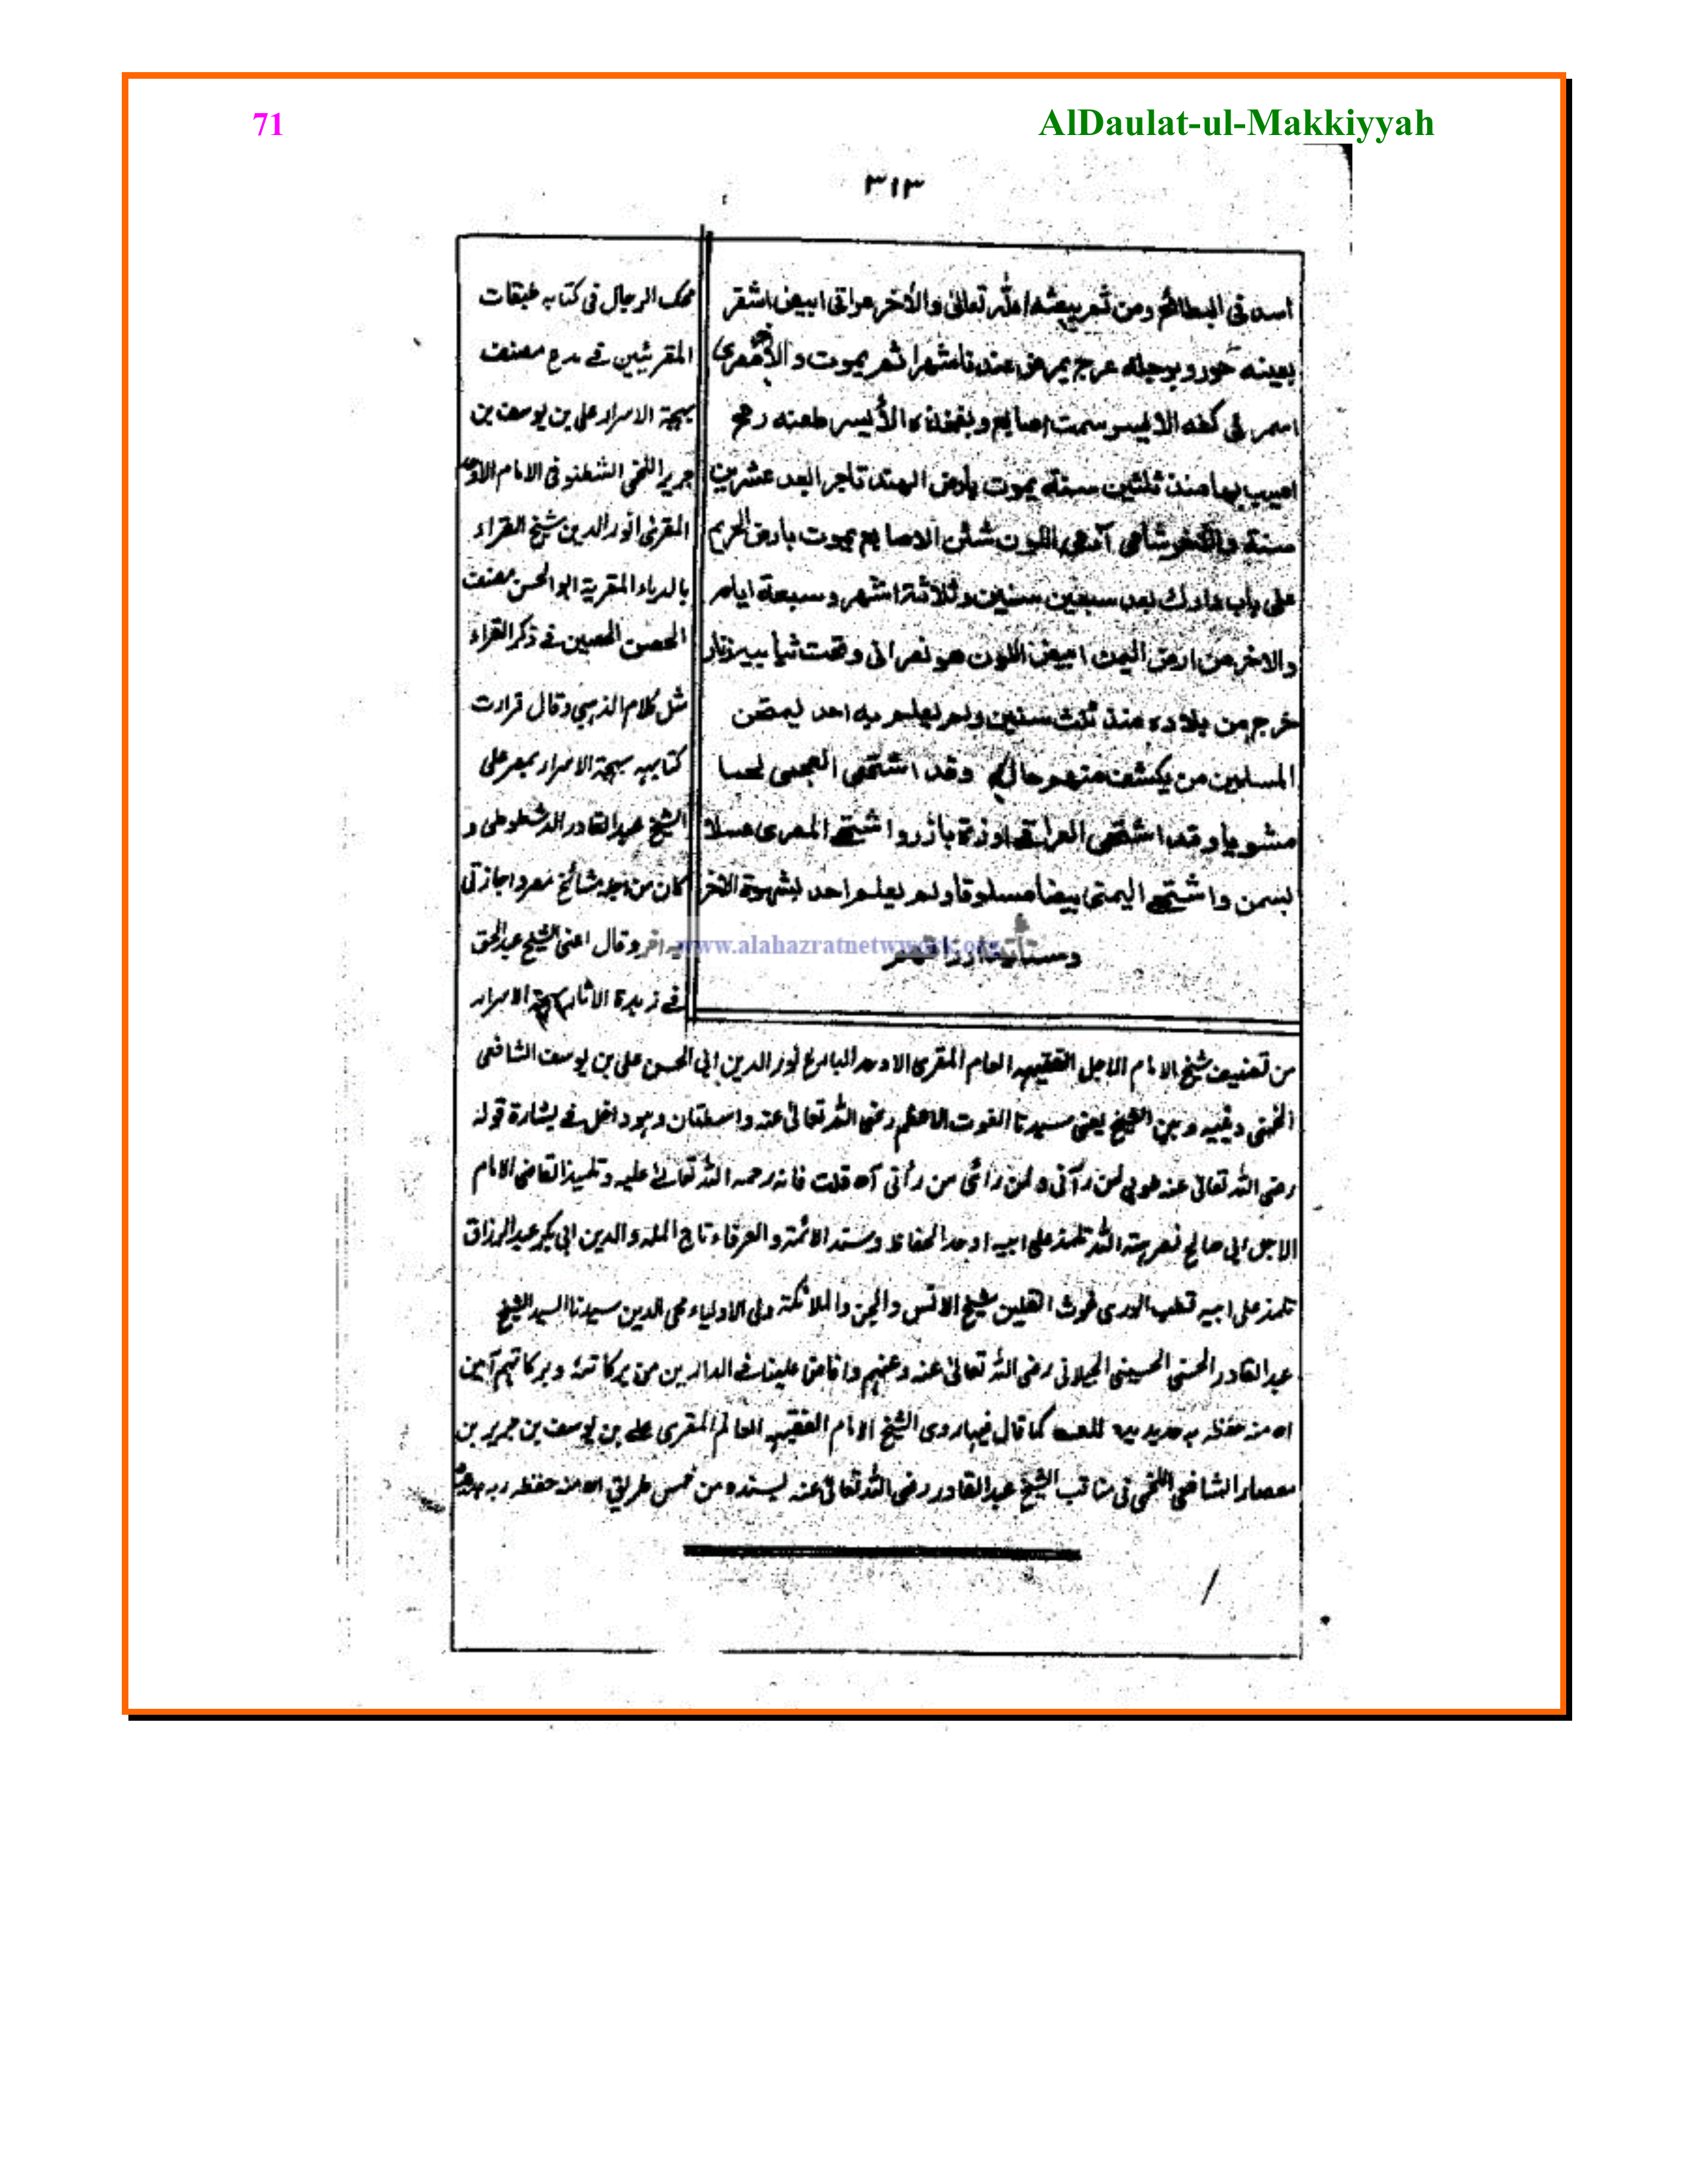 71
AlDaulat-ul-Makkiyyah
٣١٣
اسد فى البطائح ومن ثم يبعثه الله تعالى والأخر عراقى ابيض اشقر
بعينه حور وبرجله عرج يمرض عندنا شهرا ثم يموت والأخر مصرى
اسمر فى كفه الايسر ست اصابع وبفخذه الأيسر طعنه رمح
اصيب بها منذ ثلثين سنة يموت بارض الهند تاجرا بعد عشرين
سنة والأخر شامى آدمى اللون شثن الاصابع يموت بارض الحريم
على باب دارك بعد سبعين سنين وثلاثة اشهر وسبعة ايام
والاخر من ارض اليمن ابيض اللون هو نصرانى وتحت ثيابه زنار
خرج من بلاده منذ ثلث سنين ولم يعلم به احد ليمتحن
المسلمين من يكشف منهم حاله وقد اشتهى العجمى لحما
مشويا وقد اشتهى العراقى اوزة بارز واشتهى المصرى عسلا
بسمن واشتهى اليمنى بيضا مسلوقا ولم يعلم احد بشهوة الاخر
محك الرجال فى كتابه طبقات
المقرئين فى مدح مصنف
بهجة الاسرار على بن يوسف بن
جرير اللخمى الشطنوفى الامام الاوحد
المقرئ نور الدين شيخ القراء
بالديار المصرية ابو الحسن مصنف
الحصن الحصين فى ذكر القراء
مثل كلام الذهبى وقال قرات
كتابه بهجة الاسرار بمصر على
الشيخ عبد القادر الدشطوطى و
كان من اجلة مشائخ مصر واجازنى
وقال اعنى الشيخ عبد الحق
www.alahazratnetwork.org
فى زبدة الاثار بهجة الاسرار
من تصنيف شيخ الامام الاجل الفقيه العالم المقرى الاوحد البارع نور الدين ابى الحسن على بن يوسف الشافعى
اللخمى وبينه وبين الشيخ يعنى سيدنا الغوث الاعظم رضى الله تعالى عنه واسطتان وهو داخل فى بشارة قوله
رضى الله تعالى عنه طوبى لمن رآنى ولمن رأى من رأنى اه قلت فانه رحمه الله تعالى عليه وتلميذ القاضى الامام
الاجل ابى صالح نصر هبة الله تلمذ على ابيه اوحد الحفاظ وسند الائمة والعرفاء تاج الملة والدين ابى بكر عبد الرزاق
تلمذ على ابيه قطب الورى غوث الثقلين شيخ الانس والجن والملائكة ولى الاولياء محى الدين سيدنا السيد الشيخ
عبد القادر الحسنى الحسينى الجيلانى رضى الله تعالى عنه وعنهم وافاض علينا فى الدارين من بركاته وبركاتهم آمين
اه منه حفظه ربه كما قال فيما روى الشيخ الامام الفقيه العالم المقرى على بن يوسف بن جرير بن
معضاد الشافعى اللخمى فى مناقب الشيخ عبد القادر رضى الله تعالى عنه بسنده من خمس طرق اه منه حفظه ربه